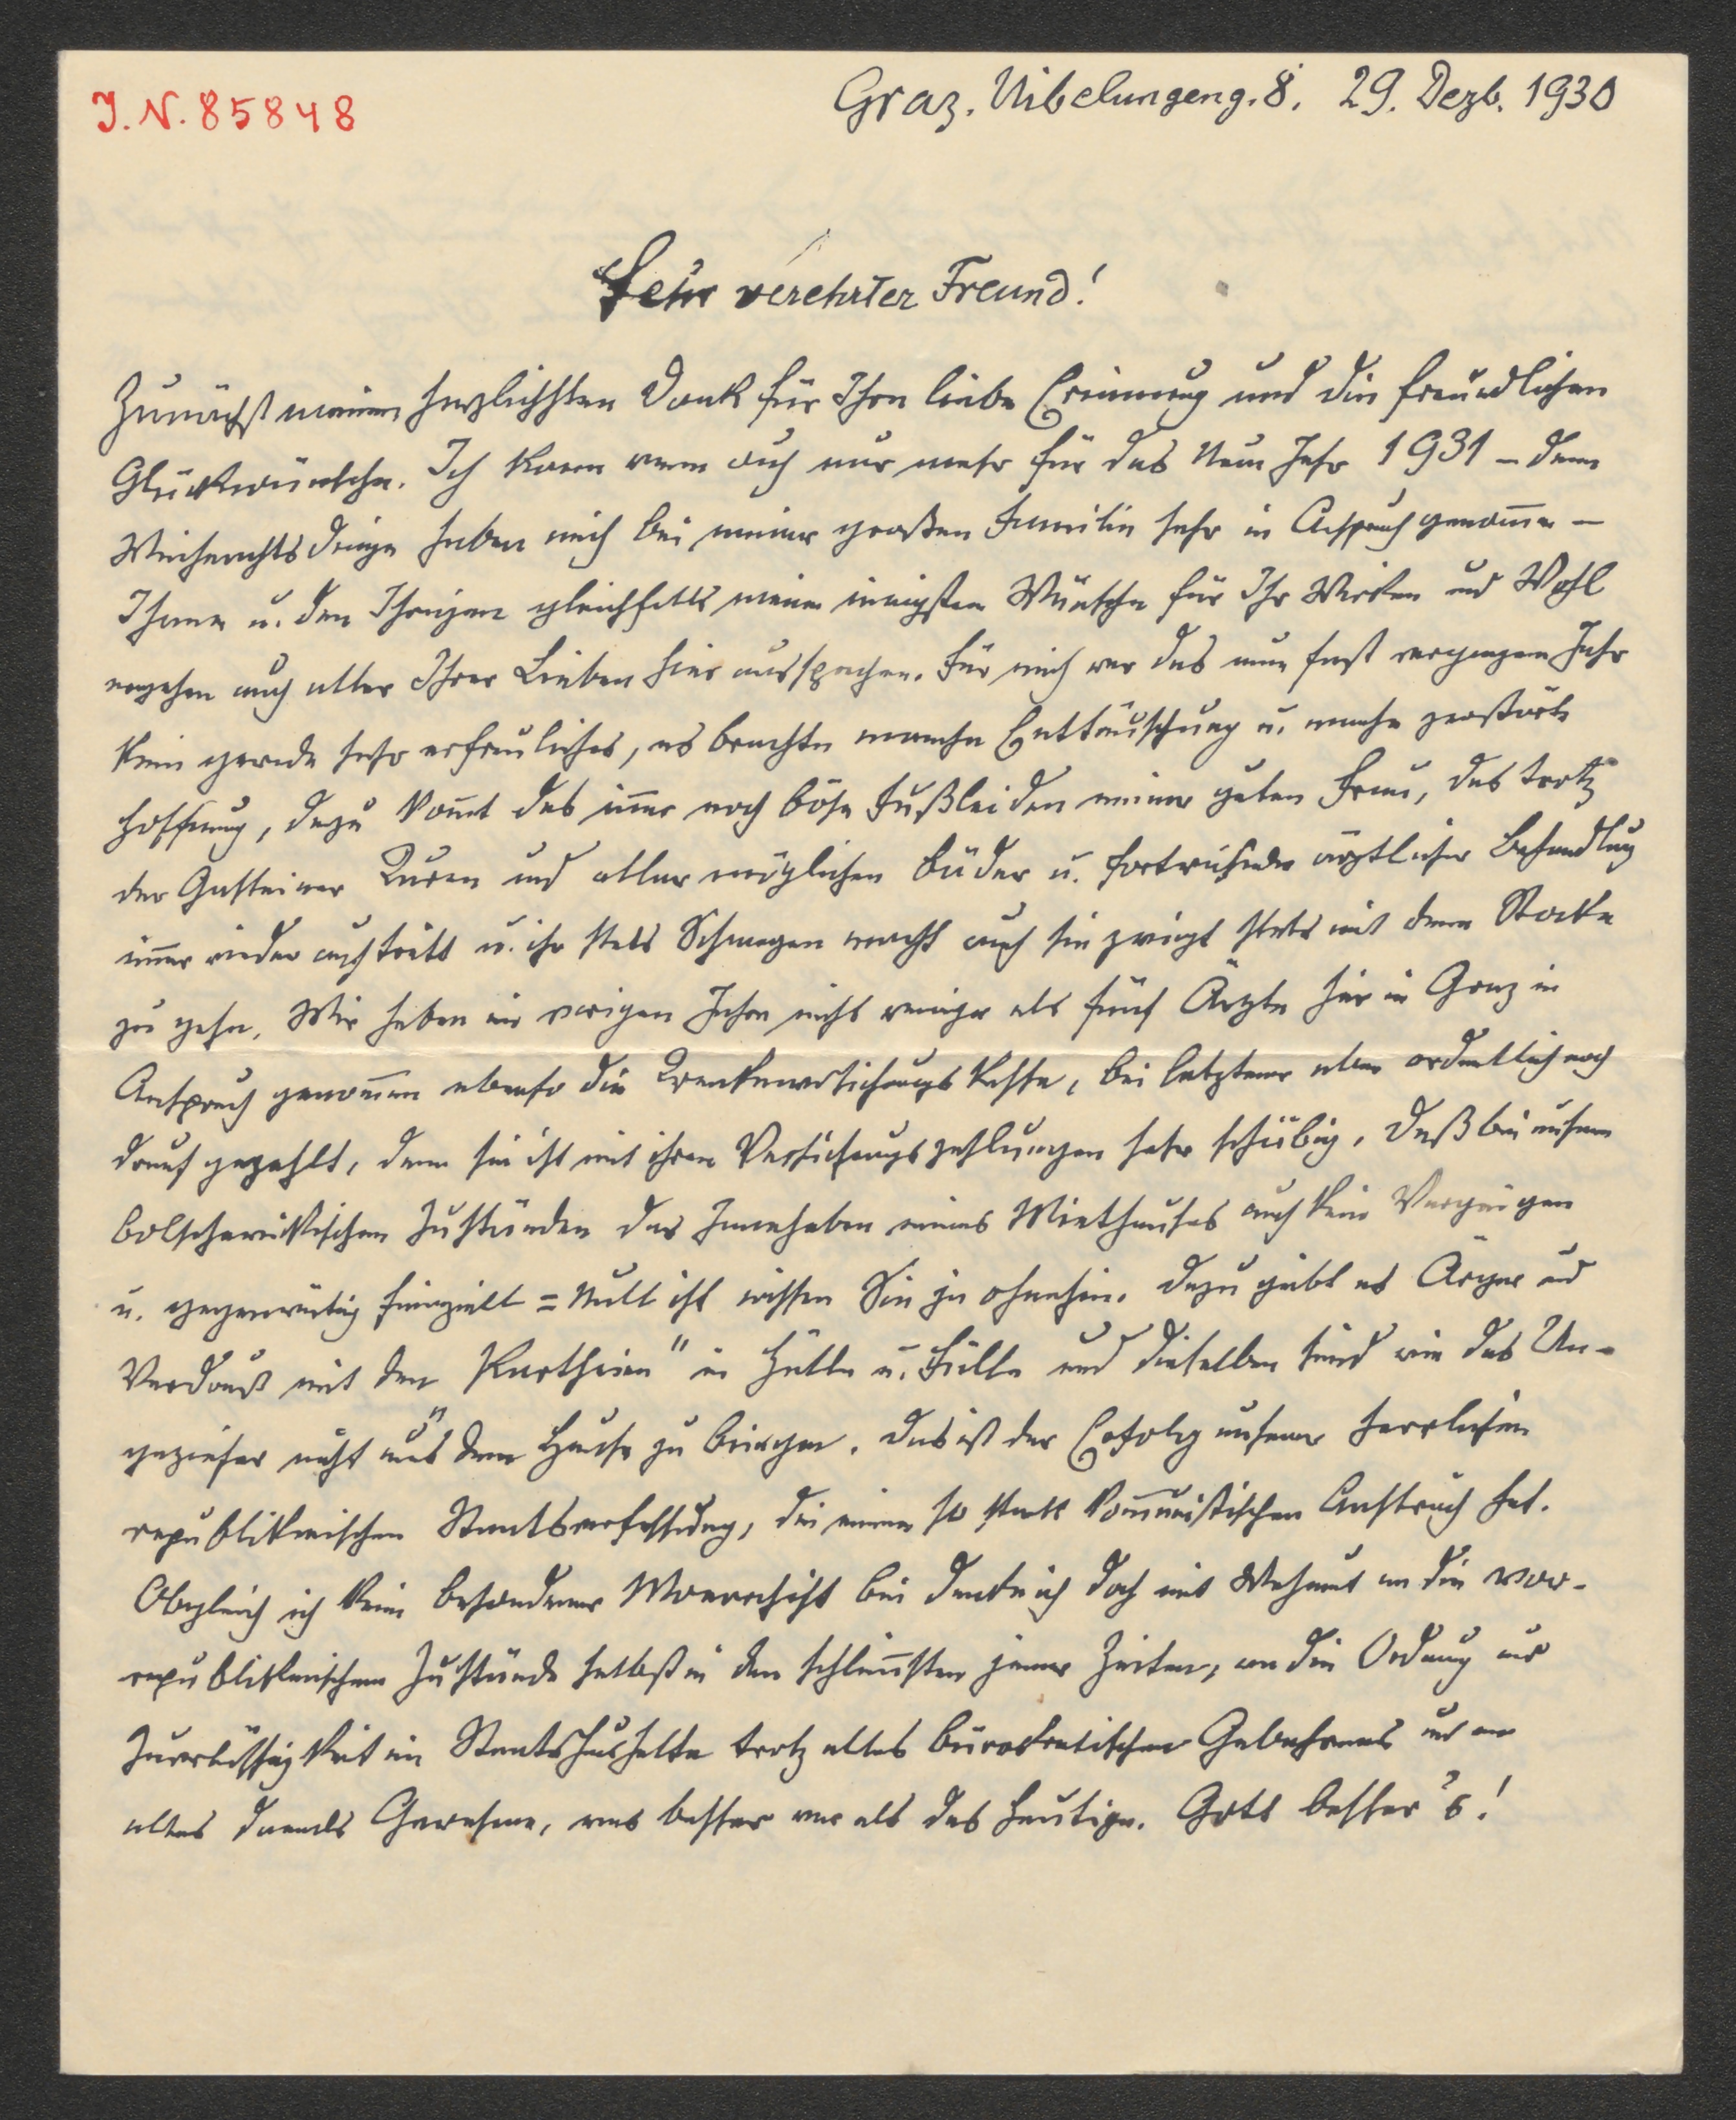 J.N. 85848
Graz. Nibelungeng. 8. 29. Dezb. 1930
Sehr verehrter Freund!
Zunächst meinen herzlichsten Dank für Ihre liebe Erinnerung und die freundlichen
Glückwünsche. Ich kann nun auch nur mehr für das Neue Jahr 1931 – denn
Weihnachtsdinge haben mich bei meiner großen Familie sehr in Anspruch genom̄en –
Ihnen u. den Ihrigen gleichfalls meine innigsten Wünsche für Ihr Wirken und Wohl
ergehen auch aller Ihrer Lieben hier aussprechen. Für mich war das nun fast vergangene Jahr
kein gerade sehr erfreuliches, es brachte manche Enttäuschung u. manche zerstörte
Hoffnung, dazu kom̄t das im̄er noch böse Fußleiden meiner guten Frau, das trotz
der Gasteiner Kuren und aller möglichen Bäder u. ärztlicher Behandlung
im̄er wieder auftritt u. ihr stets Schmerzen macht auch sie zwingt stets mit dem Stocke
zu gehn. Wir haben im vorigen Jahre nicht weniger als fünf Ärzte hier in Graz in
Anspruch genom̄en ebenso die Krankenversicherungskasse, bei letzterer aber ordentlich noch
drauf gezahlt, denn sie ist mit ihren Versicherungszahlungen sehr schäbig. Daß bei unseren
bolschewikischen Zuständen das Innehaben eines Miethauses auch kein Vergnügen
u. gegenwärtig finanziell = Null ist wissen Sie ja ohnehin. Dazu gibt es Ärger und
Verdruß mit den „Partheien" in Hülle u. Fülle und dieselben sind wie das Un-
geziefer nicht aus dem Hause zu bringen. Das ist der Erfolg unserer herrlichen
republikanischen Staatsverfassung, die einen so stark kom̄unistischen Anstrich hat.
Obgleich ich kein besonderer Monarchist bin denke ich doch mit Wehmut an die vor-
republikanischen Zustände selbst in den schlim̄sten jener Zeiten, an die Ordnung und
Zuverlässigkeit im Staatshaushalte trotz alles bürokratischen Gebahrens und an
alles damals Gewesene, was besser war als das Heutige. Gott besser's!